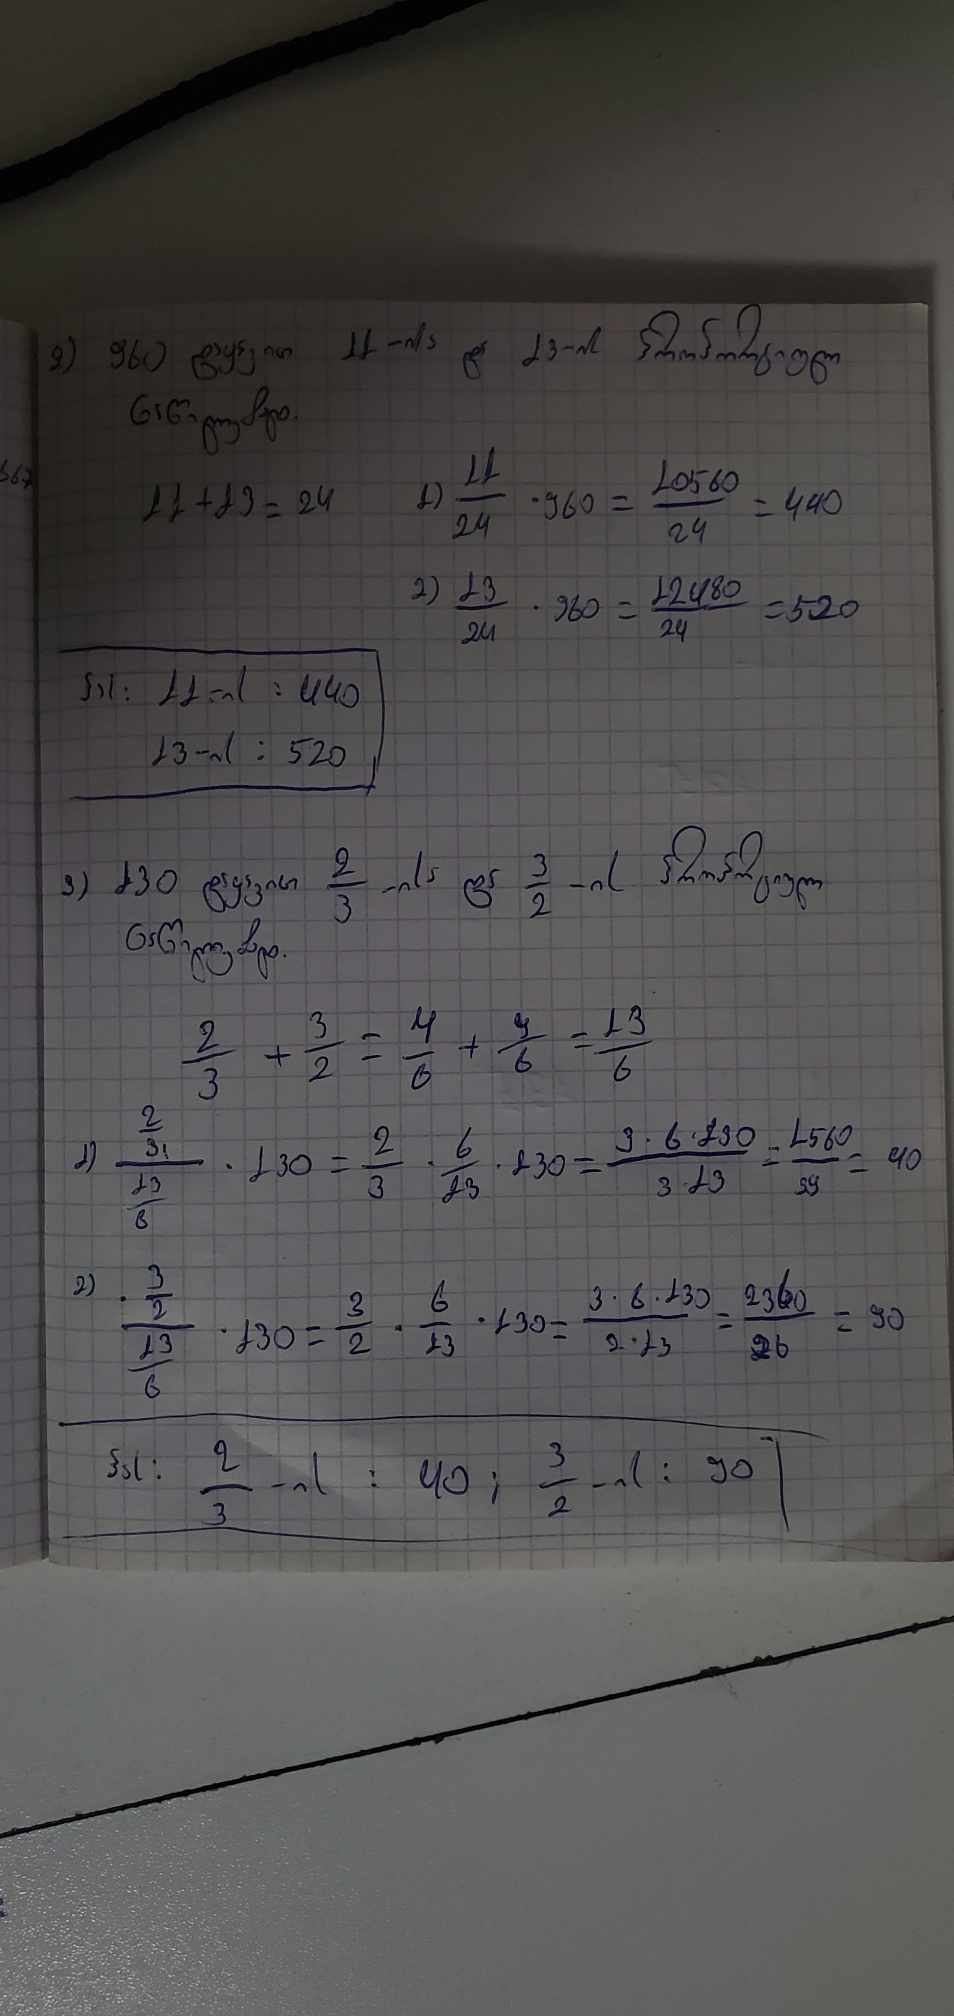 2) 960 დაყავით 11-ისა და 13-ის პროპორციულ
ნაწილებად.
11+13=24
1) 11/24 · 960 = 10560/24 = 440
2) 13/24 · 960 = 12480/24 = 520
პას: 11-ის : 440
13-ის : 520
3) 130 დაყავით 2/3-ისა და 3/2-ის პროპორციულ
ნაწილებად.
2/3 + 3/2 = 4/6 + 9/6 = 13/6
1) (2/3)/(13/6) · 130 = 2/3 · 6/13 · 130 = 2·6·130/3·13 = 1560/39 = 40
2) (3/2)/(13/6) · 130 = 3/2 · 6/13 · 130 = 3·6·130/2·13 = 2340/26 = 90
პას: 2/3-ის : 40 ; 3/2-ის : 90